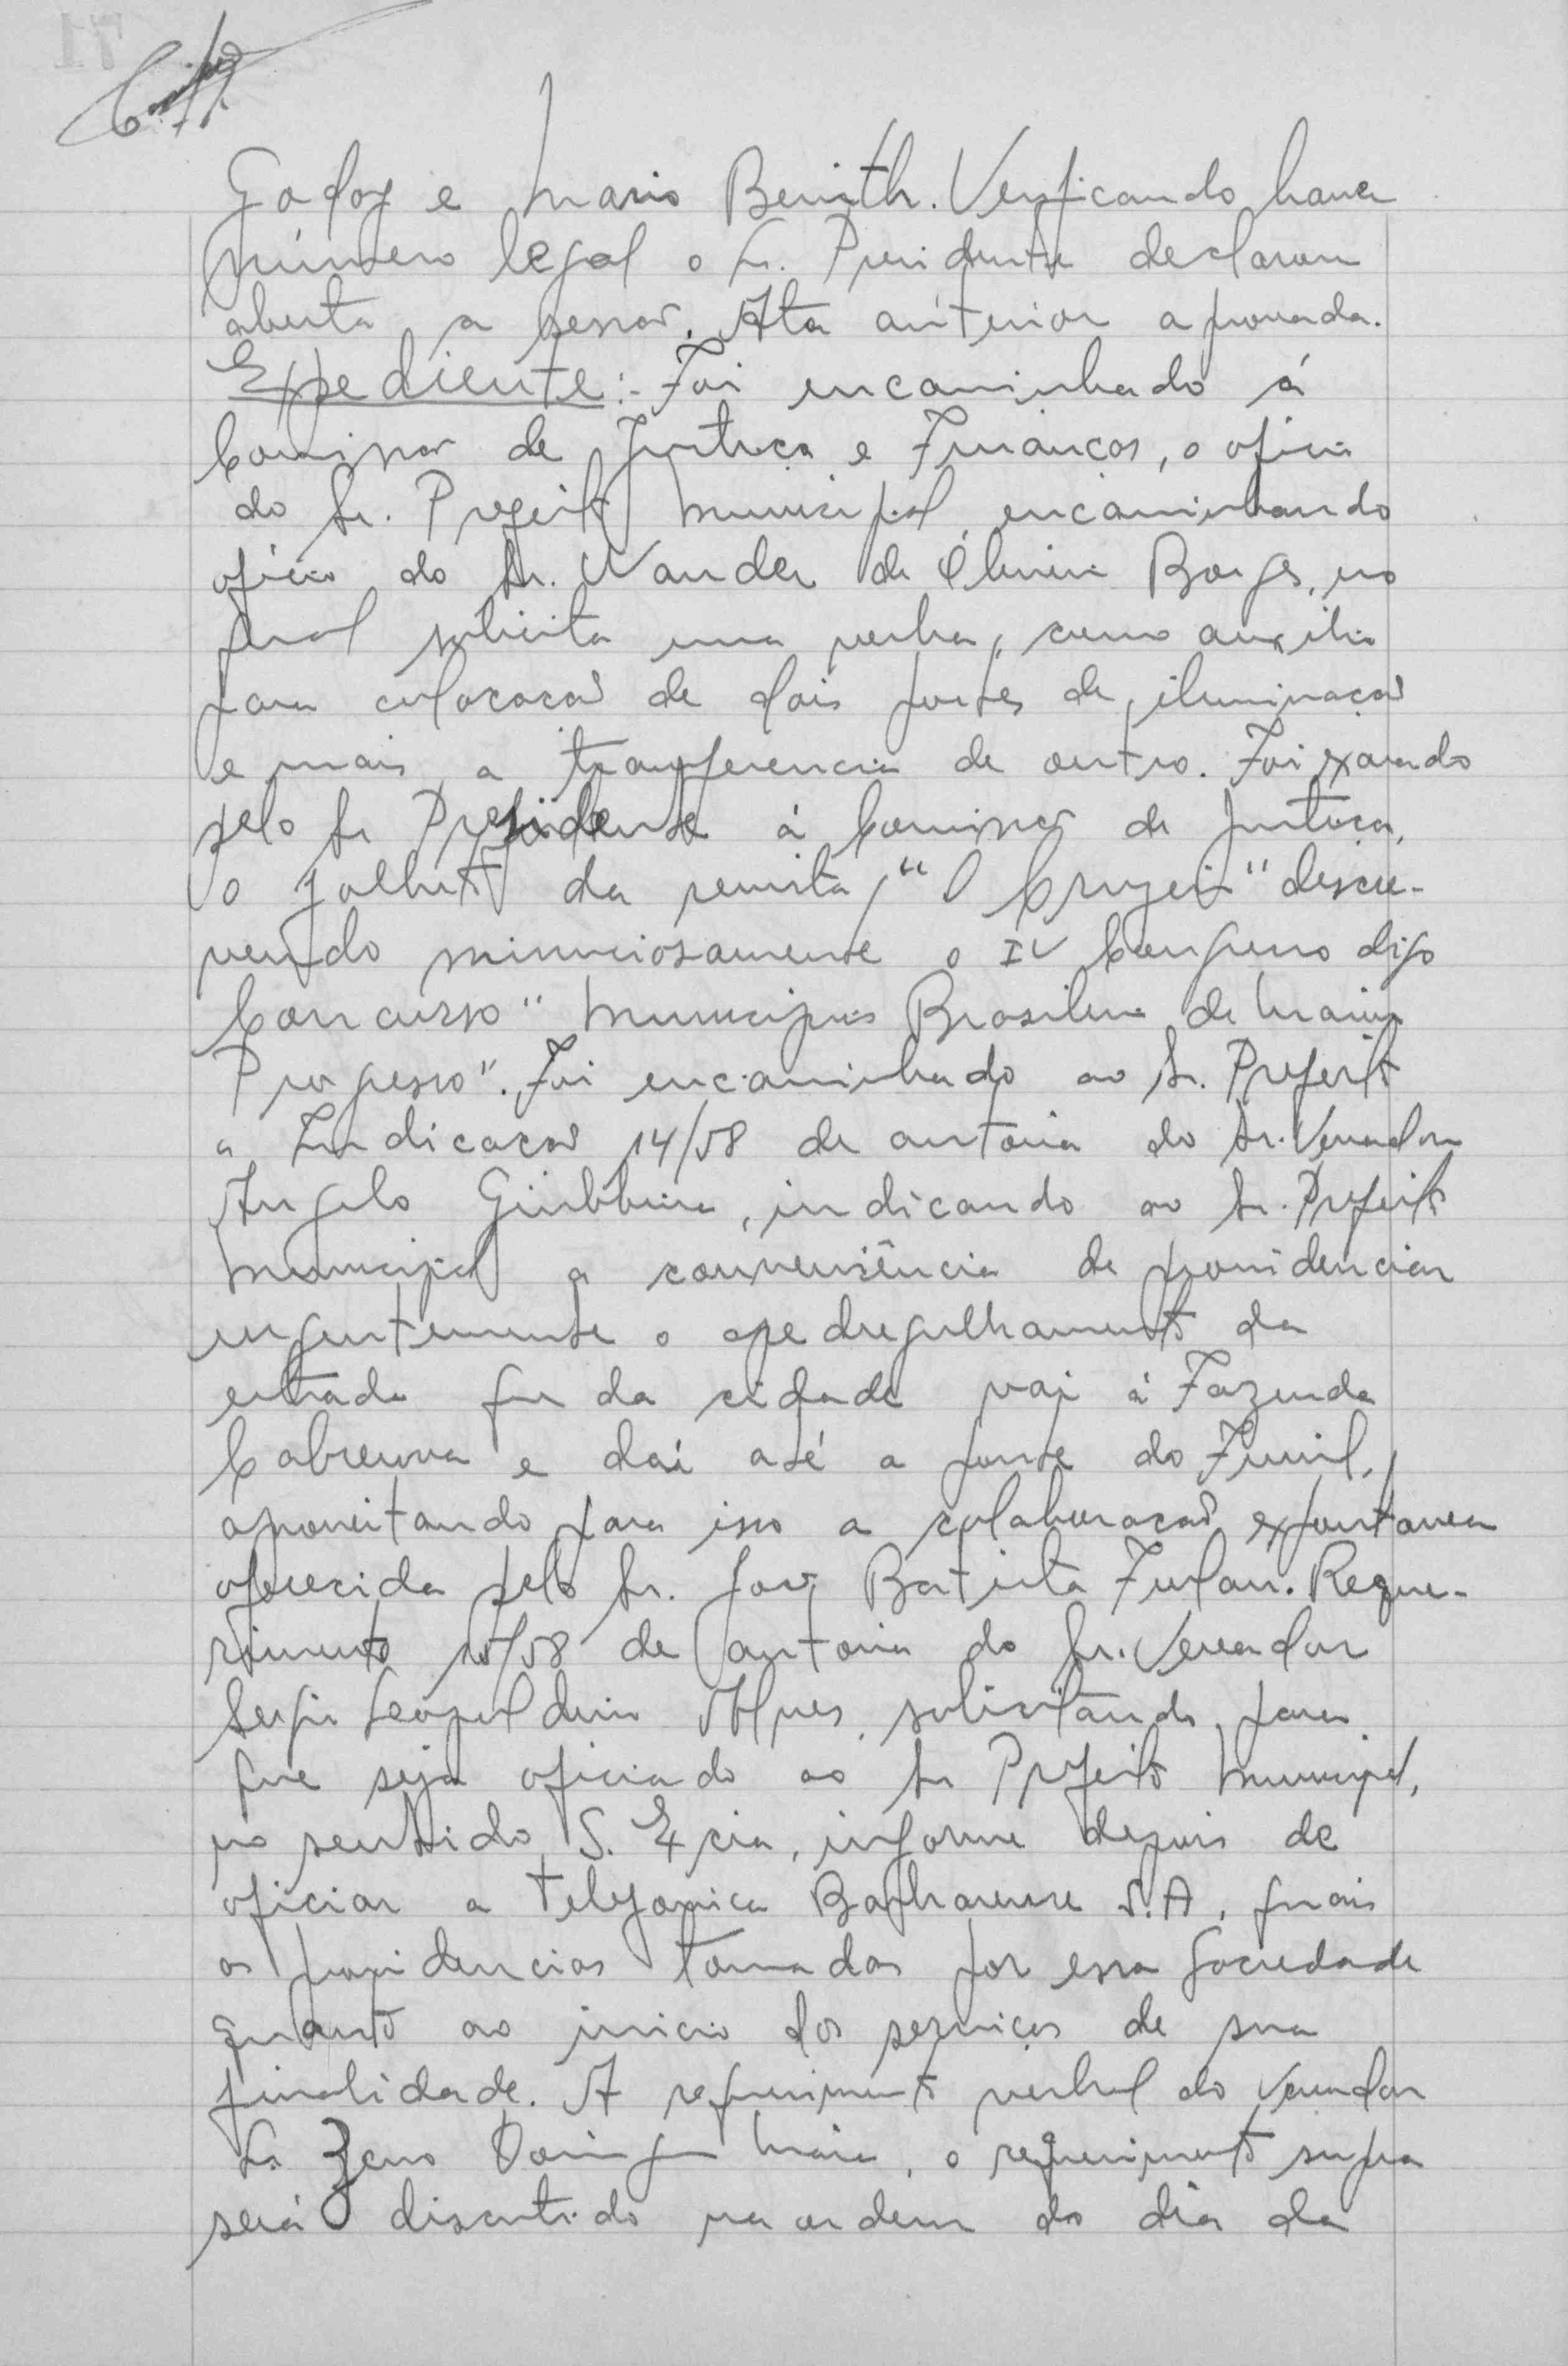 Godoy e Mario Benith. Verificando haver
número legal o Sr. Presidente declarou
aberta a sessão. Ata anterior aprovada.
Expediente:- Foi encaminhado á
Comissão de Justiça e Finanças, o oficio
do Sr. Prefeito Municipal, encaminhando
oficio do Sr. Wander de Borges, no
qual solicita uma verba, como auxilio
para colocação de dois postes de iluminação
e mais a transferencia de outro. Foi exarado
pelo Sr Presidente á Comissão de Justiça,
o folheto da revista, "O Cruzeiro" descre-
vendo minuciosamente o IV Congresso digo
Concurso "Municipios Brasileiro de Maior
Progresso". Foi encaminhado ao Sr. Prefeito
a Indicação 14/58 de autoria do Sr. Vereador
Angelo Giubbina, indicando ao Sr. Prefeito
Municipal a conveniência de providenciar
urgentemente o apedregulhamento da
estrada que da cidade vai á Fazenda
Cabreuva e daí até a ponte do Funil,
aproveitando para isso a colaboração expontanea
oferecida pelo Sr. João Batista Furlan. Reque-
rimento 15/58 de autoria do Sr. Vereador
Sergio Leopoldino Alves, solicitando para
que seja oficiado ao Sr Prefeito Municipal,
no sentido S. Excia, informe depois de
oficiar a Telefonica Barbarense S.A, quais
as providencias tomadas por essa Sociedade
quanto ao inicio dos serviços de sua
finalidade. A requerimento verbal do Vereador
Sr. Zeno Maia, o requerimento supra
será discutido na ordem do dia da